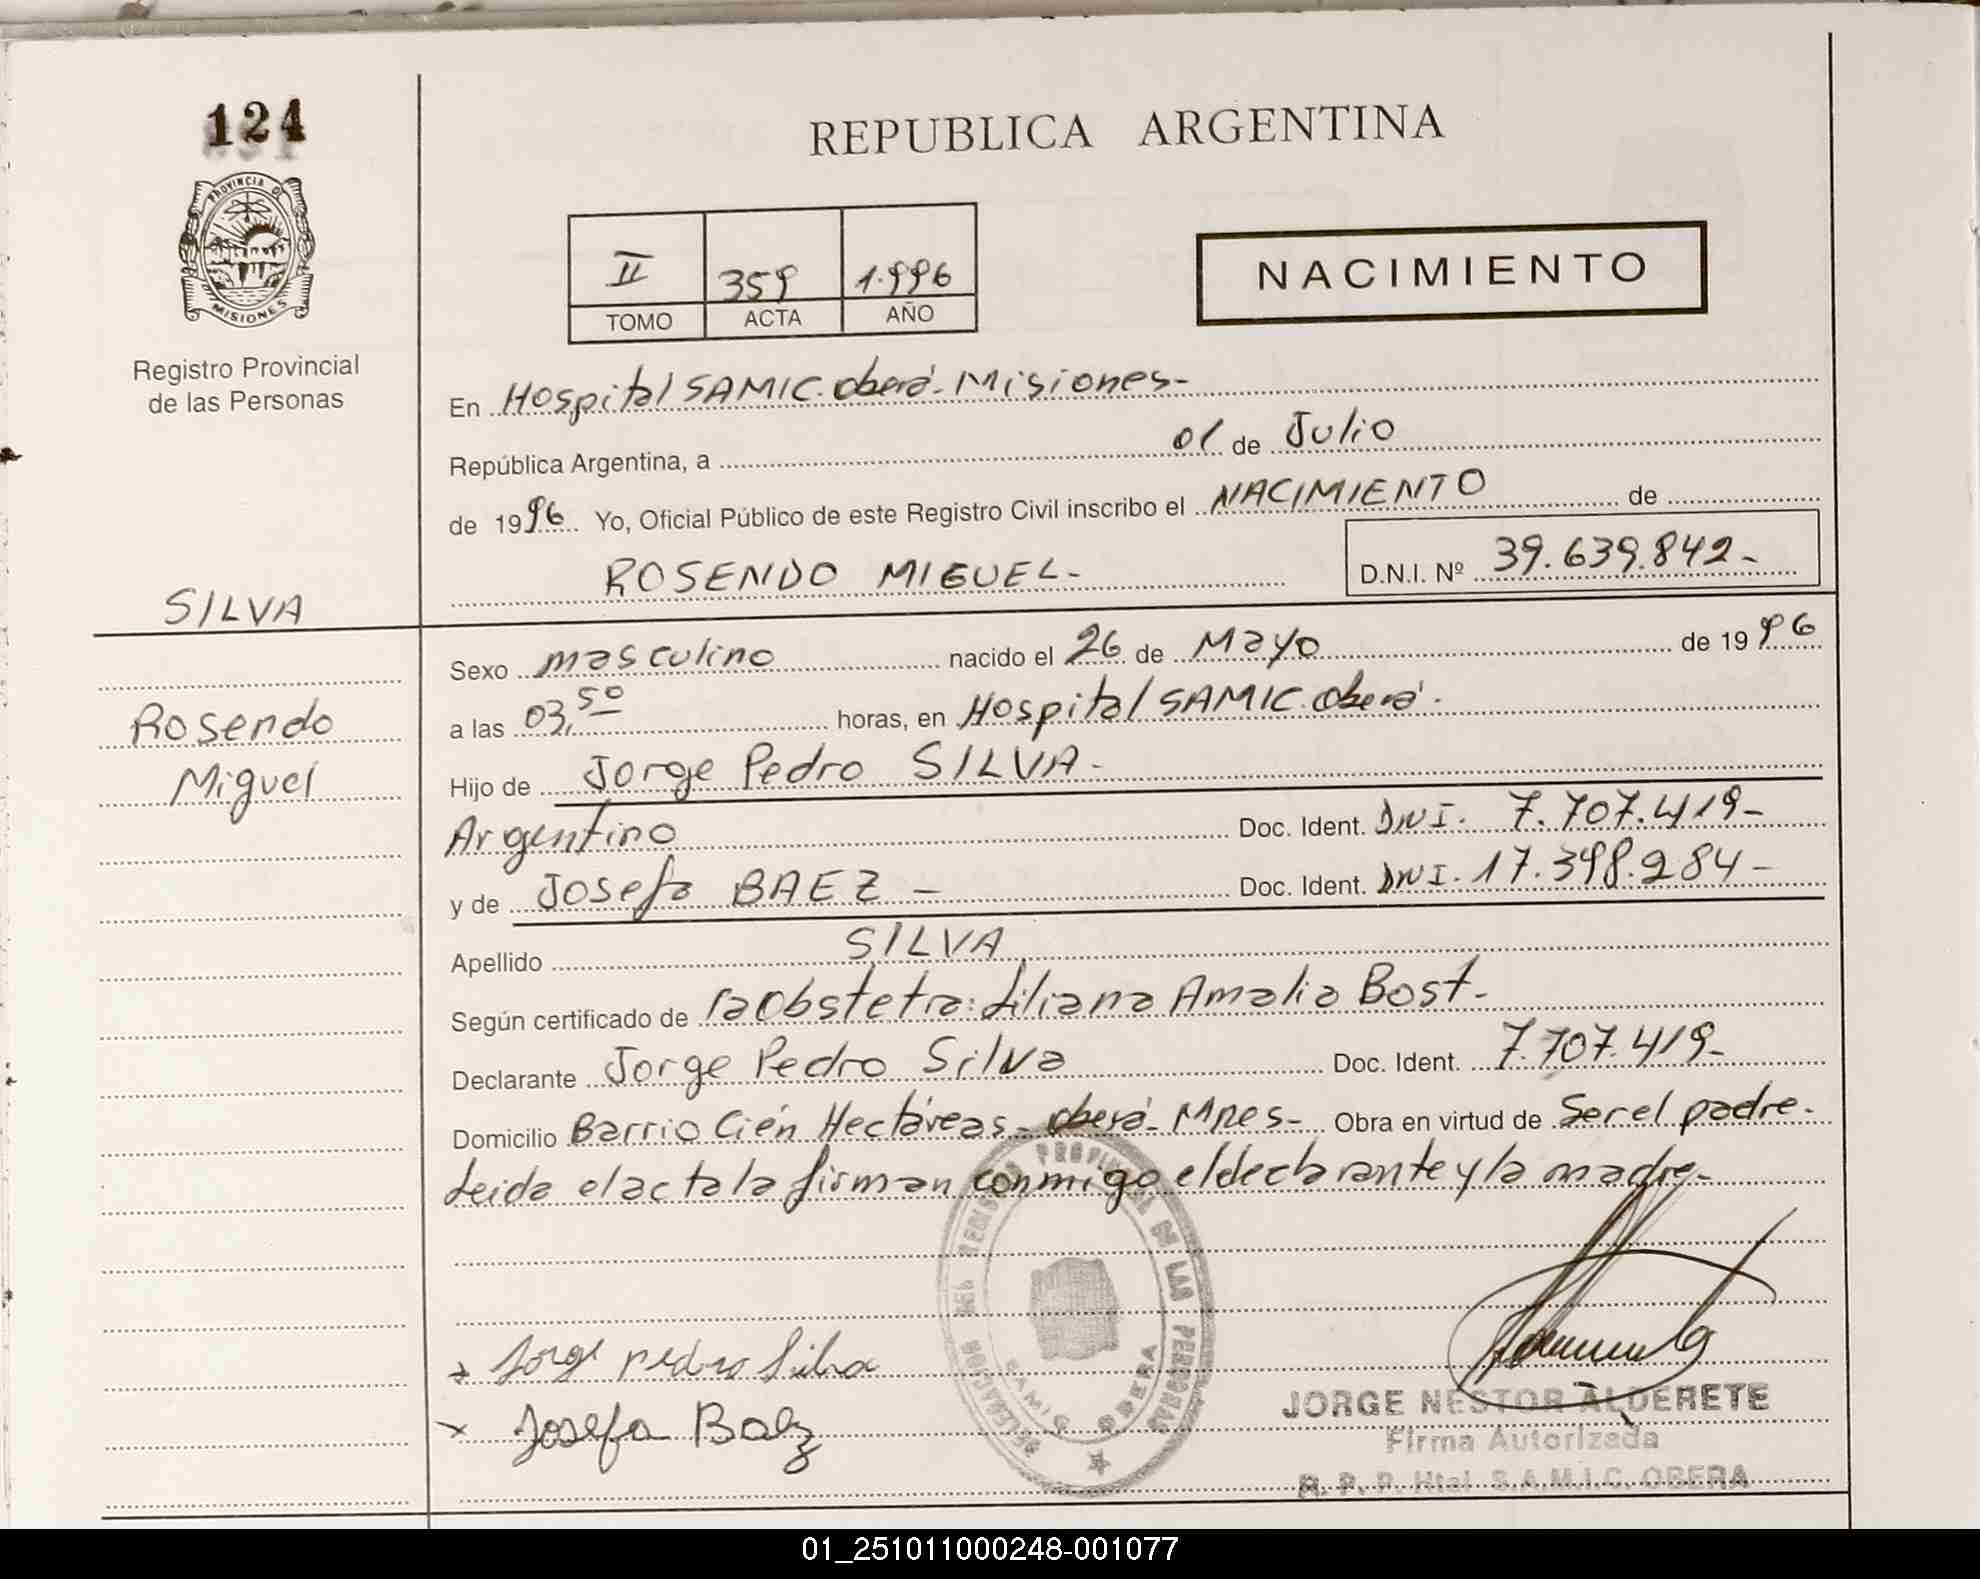 124
REPUBLICA ARGENTINA
PROVINCIA DE MISIONES
II 359 1.996
TOMO ACTA AÑO
NACIMIENTO
Registro Provincial
de las Personas
En Hospital SAMIC. Oberá- Misiones-
República Argentina, a 01 de Julio
de 1996 Yo, Oficial Público de este Registro Civil inscribo el NACIMIENTO de
ROSENDO MIGUEL- D.N.I. Nº 39.639.842-
SILVA
Rosendo
Miguel
Sexo masculino nacido el 26 de Mayo de 1996
a las 03,50 horas, en Hospital SAMIC. Oberá.
Hijo de Jorge Pedro SILVA-
Argentino Doc. Ident. DNI. 7.707.419-
y de Josefa BAEZ - Doc. Ident. DNI. 17.398.284-
Apellido SILVA
Según certificado de la obstetra: Liliana Amalia Bost-
Declarante Jorge Pedro Silva Doc. Ident. 7.707.419-
Domicilio Barrio Cién Hectáreas- Oberá- Mnes- Obra en virtud de Ser el padre.
Leida el acta la firman conmigo el declarante y la madre-
Jorge Pedro Silva
Josefa Baez
DELEGACION DEL REGISTRO PROVINCIAL DE LAS PERSONAS
SAMIC OBERA
JORGE NESTOR ALDERETE
Firma Autorizada
R. P. P. Htal S.A.M.I.C. OBERA
01_251011000248-001077